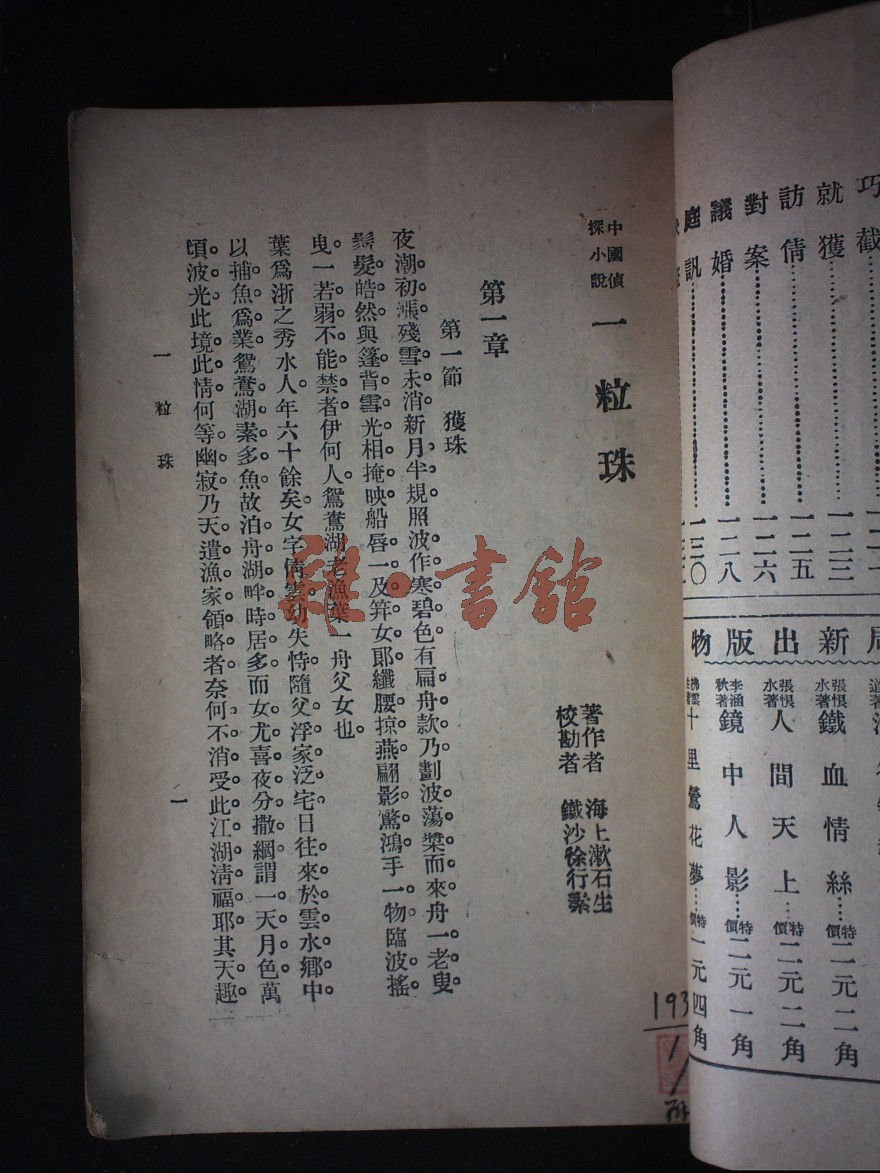 巧截
就獲……一二三
訪倩……一二五
對案……一二六
議婚……一二八
庭訊……一三〇
局新出版物
張恨水著 鐵血情絲……特價二元二角
張恨水著 人間天上……特價二元二角
李涵秋著 鏡中人影……特價二元一角
十里鶯花夢……特價一元四角
中國偵探小說 一粒珠
著作者 海上漱石生
校勘者 鐵沙徐行素
第一章
第一節 獲珠
夜潮初漲。殘雪未消。新月半規。照波作寒碧色。有扁舟款乃劃波蕩槳而來。舟一老叟。
鬚髮皓然。與篷背雪光相掩映。船唇一及笄女郎。纖腰掠燕。翩影驚鴻。手一物臨波搖
曳。一若弱不能禁者。伊何人。鴛鴦湖老漁葉一舟父女也。
葉爲浙之秀水人。年六十餘矣。女字倩雲。幼失恃。隨父浮家泛宅。日往來於雲水鄉中。
以捕魚爲業。鴛鴦湖素多魚。故泊舟湖畔時居多。而女尤喜夜分撒網。謂一天月色。萬
頃波光。此境此情。何等幽寂。乃天遣漁家領略者。奈何不消受此江湖清福耶。其天趣
一粒珠
一
雜·書館
193
1